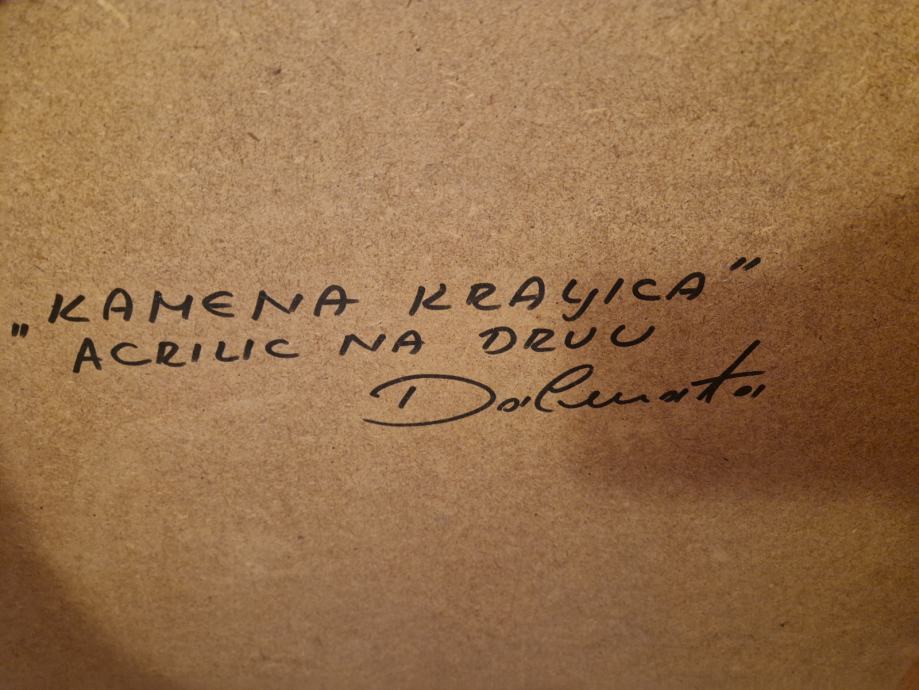 „KAMENA KRALJICA”
ACRILIC NA DRVU
Dalmata